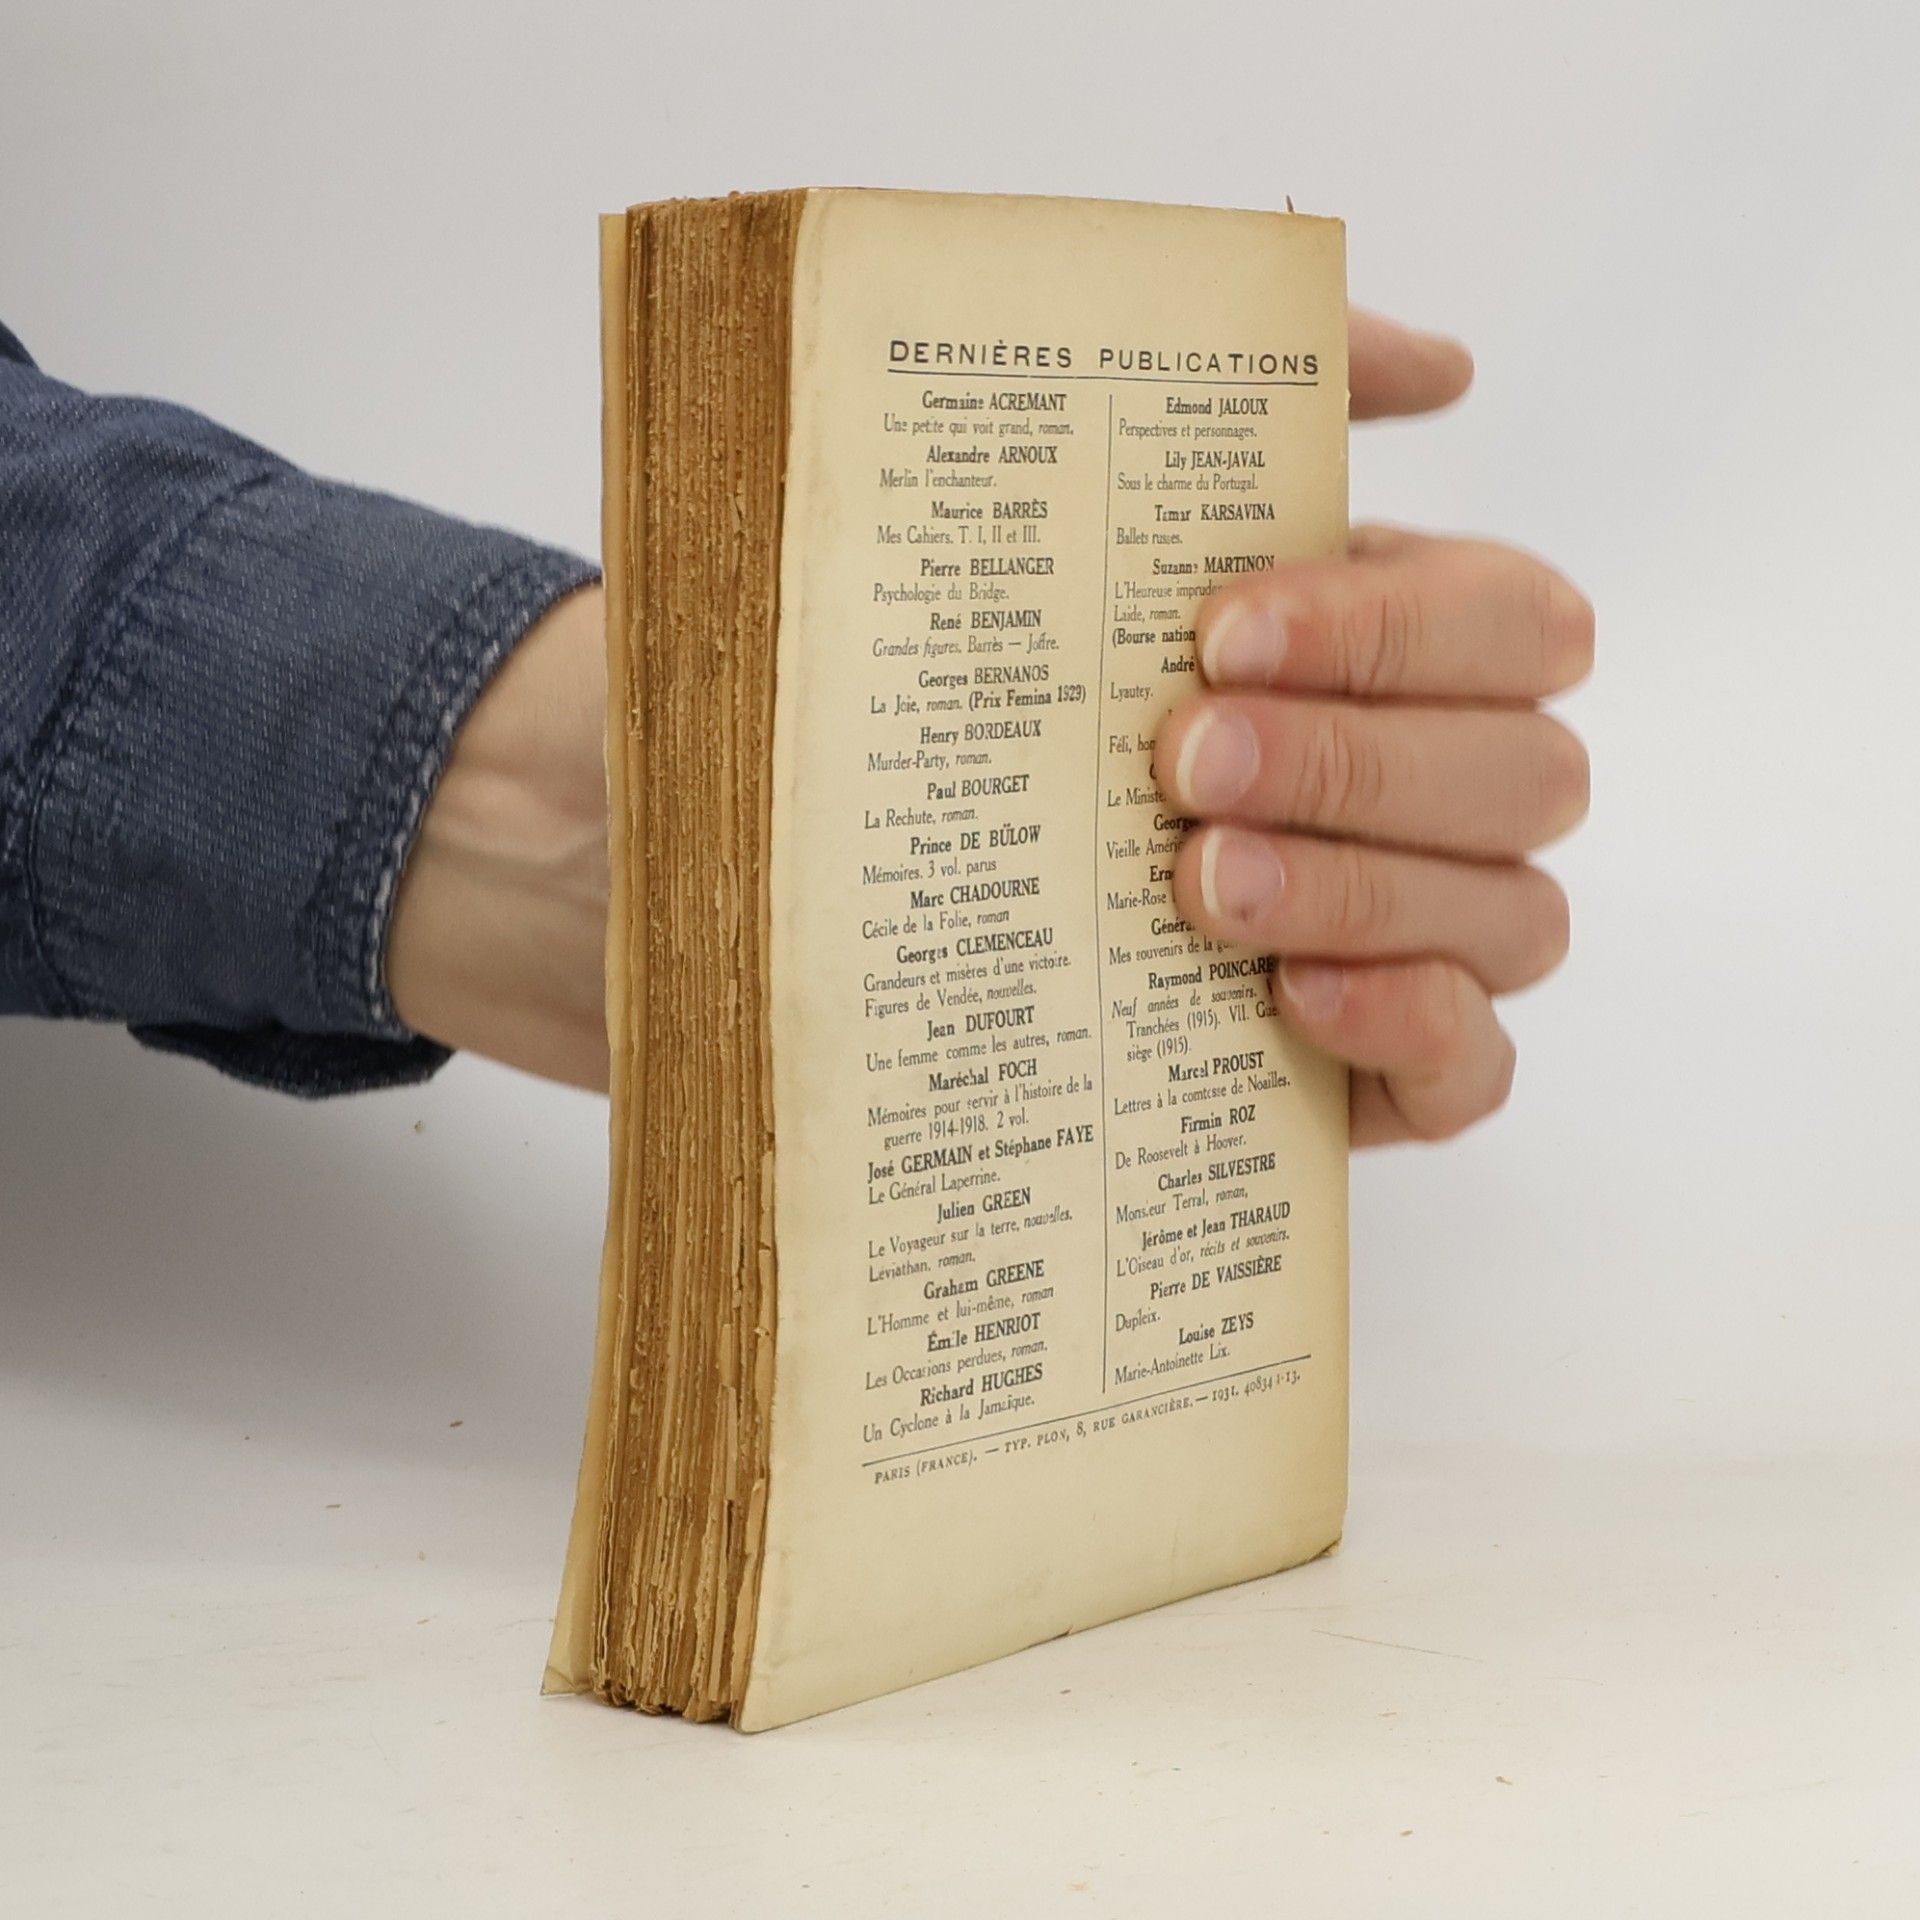 DERNIÈRES PUBLICATIONS
Germaine ACREMANT
Une petite qui voit grand, roman.
Alexandre ARNOUX
Merlin l'enchanteur.
Maurice BARRÈS
Mes Cahiers. T. I, II et III.
Pierre BELLANGER
Psychologie du Bridge.
René BENJAMIN
Grandes figures. Barrès — Joffre.
Georges BERNANOS
La Joie, roman. (Prix Femina 1929)
Henry BORDEAUX
Murder-Party, roman.
Paul BOURGET
La Rechute, roman.
Prince DE BÜLOW
Mémoires. 3 vol. parus
Marc CHADOURNE
Cécile de la Folie, roman
Georges CLEMENCEAU
Grandeurs et misères d'une victoire.
Figures de Vendée, nouvelles.
Jean DUFOURT
Une femme comme les autres, roman.
Maréchal FOCH
Mémoires pour servir à l'histoire de la
guerre 1914-1918. 2 vol.
José GERMAIN et Stéphane FAYE
Le Général Laperrine.
Julien GREEN
Le Voyageur sur la terre, nouvelles.
Léviathan, roman.
Graham GREENE
L'Homme et lui-même, roman
Émile HENRIOT
Les Occasions perdues, roman.
Richard HUGHES
Un Cyclone à la Jamaïque.
Edmond JALOUX
Perspectives et personnages.
Lily JEAN-JAVAL
Sous le charme du Portugal.
Tamar KARSAVINA
Ballets russes.
Suzanne MARTINON
L'Heureuse
Laide, roman.
(Bourse
André
Lyautey.
Féli,
Le
Vieille
Marie-Rose
Mes souvenirs de la
Raymond POINCARÉ
Neuf années de souvenirs.
Tranchées (1915). VII.
siège (1915).
Marcel PROUST
Lettres à la comtesse de Noailles.
Firmin ROZ
De Roosevelt à Hoover.
Charles SILVESTRE
Monsieur Terral, roman,
Jérôme et Jean THARAUD
L'Oiseau d'or, récits et souvenirs.
Pierre DE VAISSIÈRE
Dupleix.
Louise ZEYS
Marie-Antoinette Lix.
PARIS (FRANCE). — TYP. PLON, 8, RUE GARANCIÈRE. — 1931. 40834-1-13.